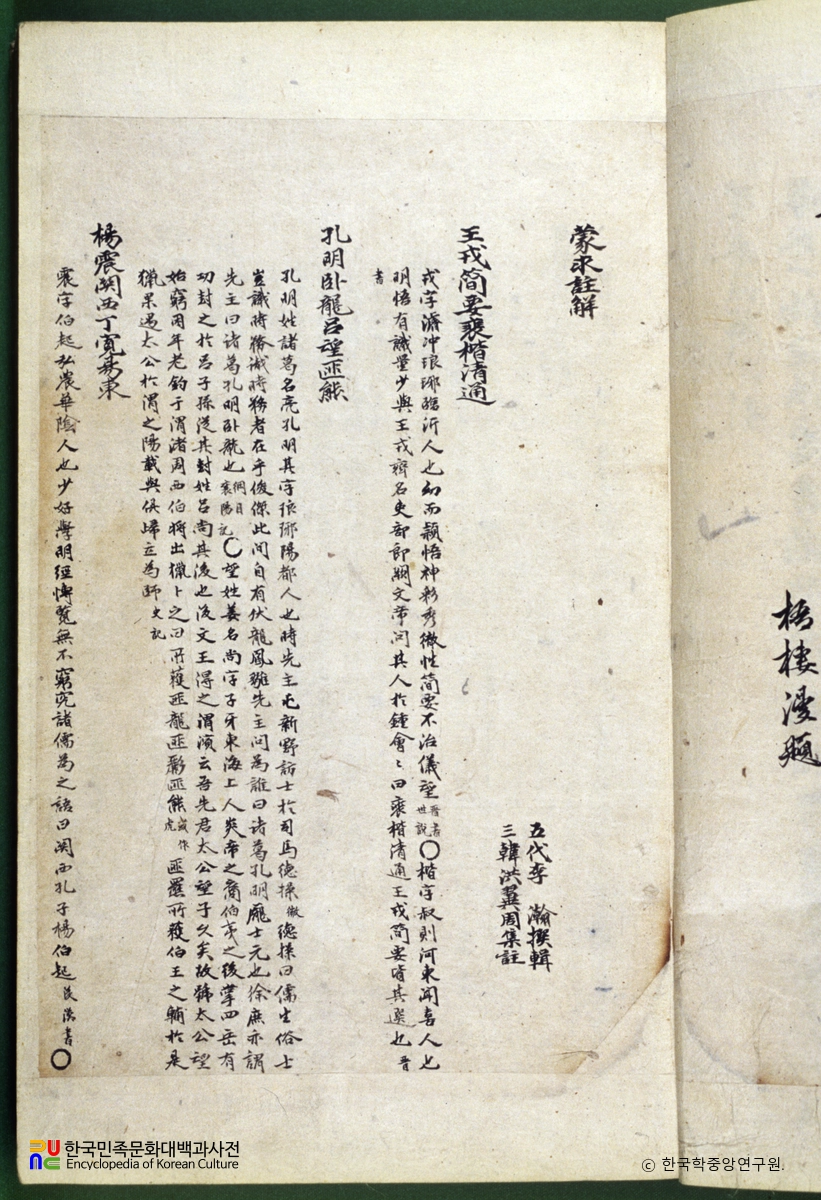 梧棲漫題
蒙求註解
五代李瀚撰輯
三韓洪翼周集註
王戎簡要裴楷淸通
戎字濬冲琅琊臨沂人也幼而穎悟神彩秀徹性簡要不治儀望晉書世說〇楷字叔則河東聞喜人也
明悟有識量少與王戎齊名吏部郎闕文帝問其人於鍾會〻曰裴楷淸通王戎簡要皆其選也晉
書
孔明卧龍呂望匪熊
孔明姓諸葛名亮孔明其字琅琊陽都人也時先主屯新野訪士於司馬德操徽德操曰儒生俗士
豈識時務識時務者在乎俊傑此間自有伏龍鳳雛先主問爲誰曰諸葛孔明龐士元也徐庶亦謂
先主曰諸葛孔明卧龍也綱目襄陽記〇望姓姜名尚字子牙東海上人炎帝之裔伯夷之後掌四岳有
功封之於呂子孫從其封姓呂尚其後也後文王得之渭濱云吾先君太公望子久矣故號太公望
始窮困年老釣于渭渚周西伯將出獵卜之曰所獲匪龍匪彲匪熊或作虎匪羆所獲伯王之輔於是
獵果遇太公於渭之陽載與俱歸立爲師史記
楊震関西丁寬易東
震字伯起弘農華陰人也少好學明經博覽無不窮究諸儒爲之語曰関西孔子楊伯起後漢書〇
한국민족문화대백과사전
Encyclopedia of Korean Culture
ⓒ 한국학중앙연구원.